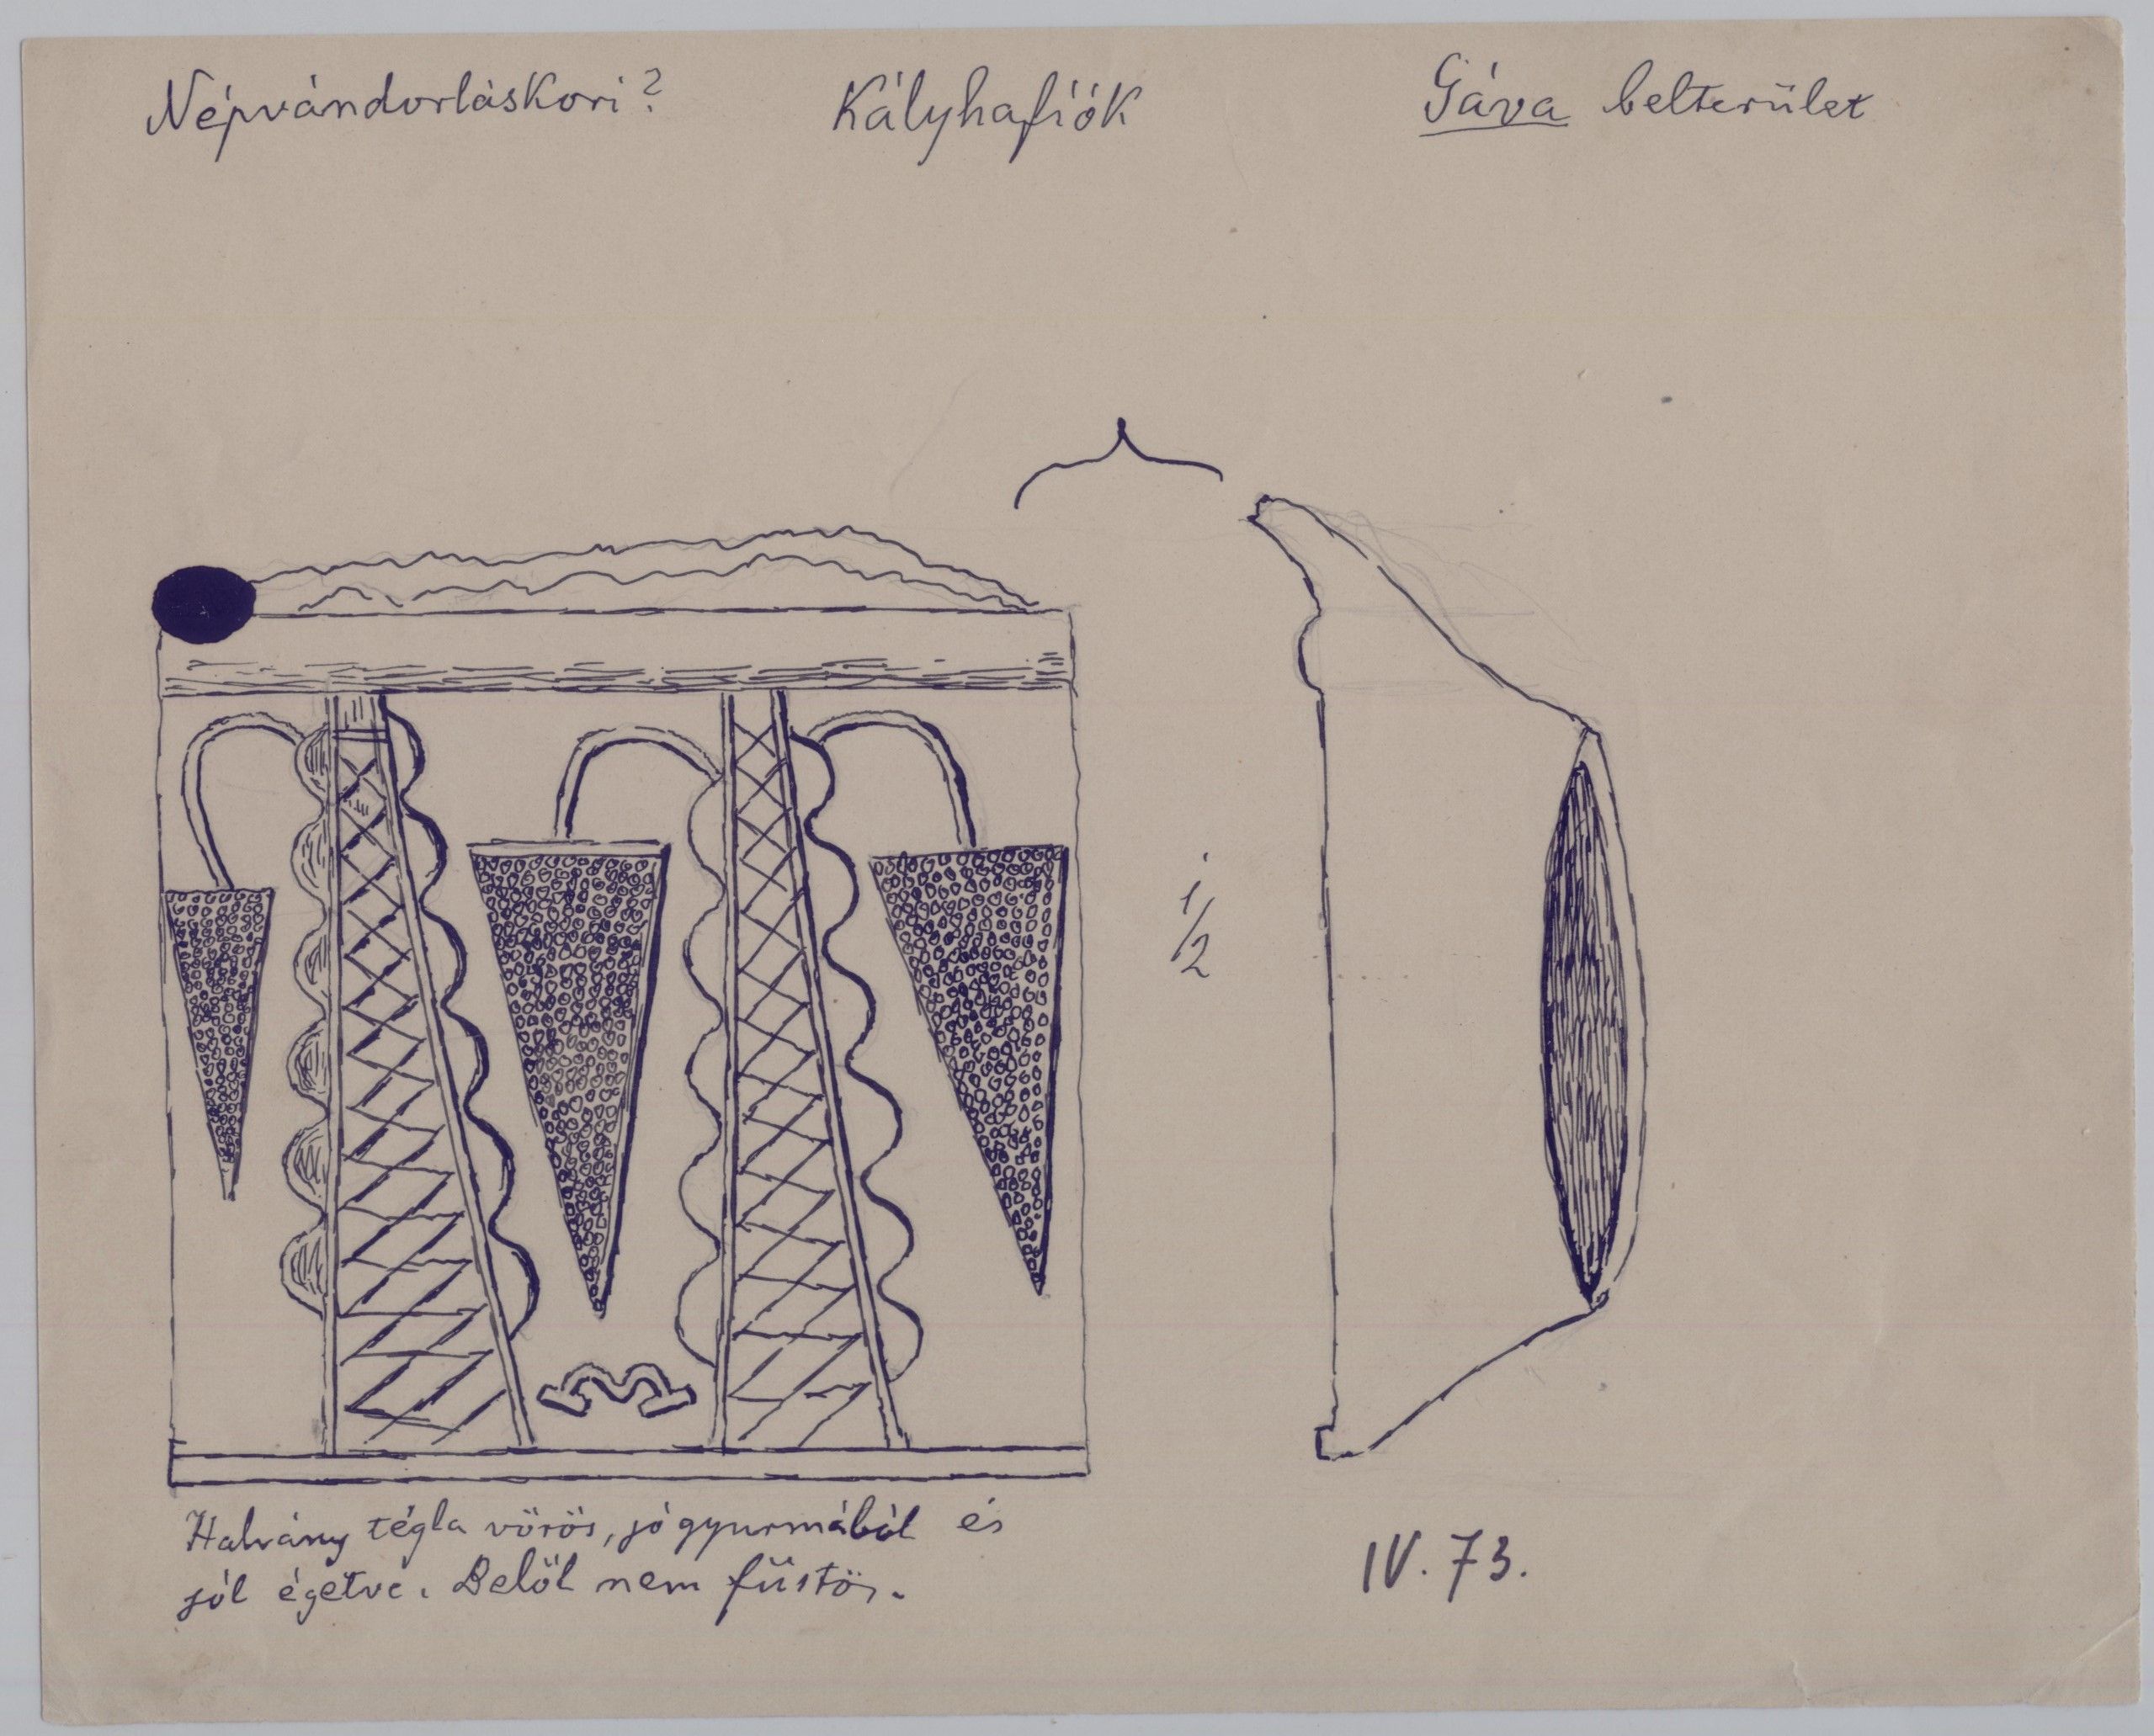 Népvándorláskori? Kályhafiók Gáva belterület
1/2
Halvány tégla vörös, jó gyurmából és
jól égetve. Belől nem füstös.
IV. 73.